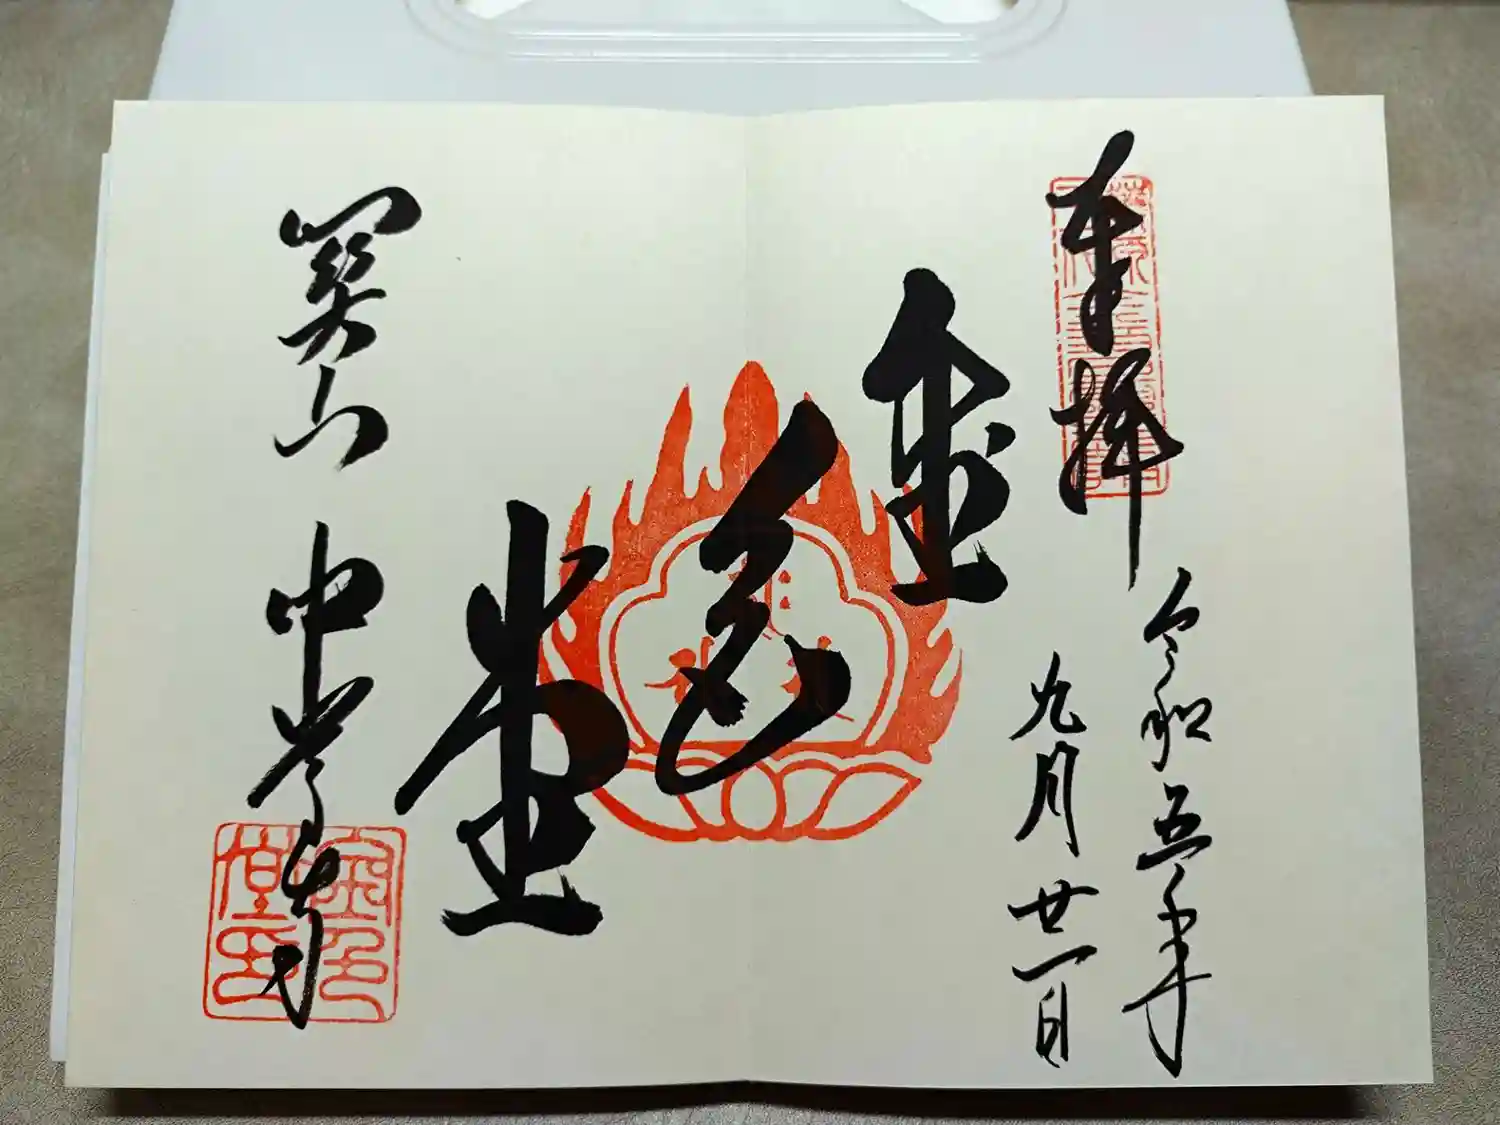 奉拝
令和五年
九月廿一日
金色堂
関山 中尊寺
金色堂印